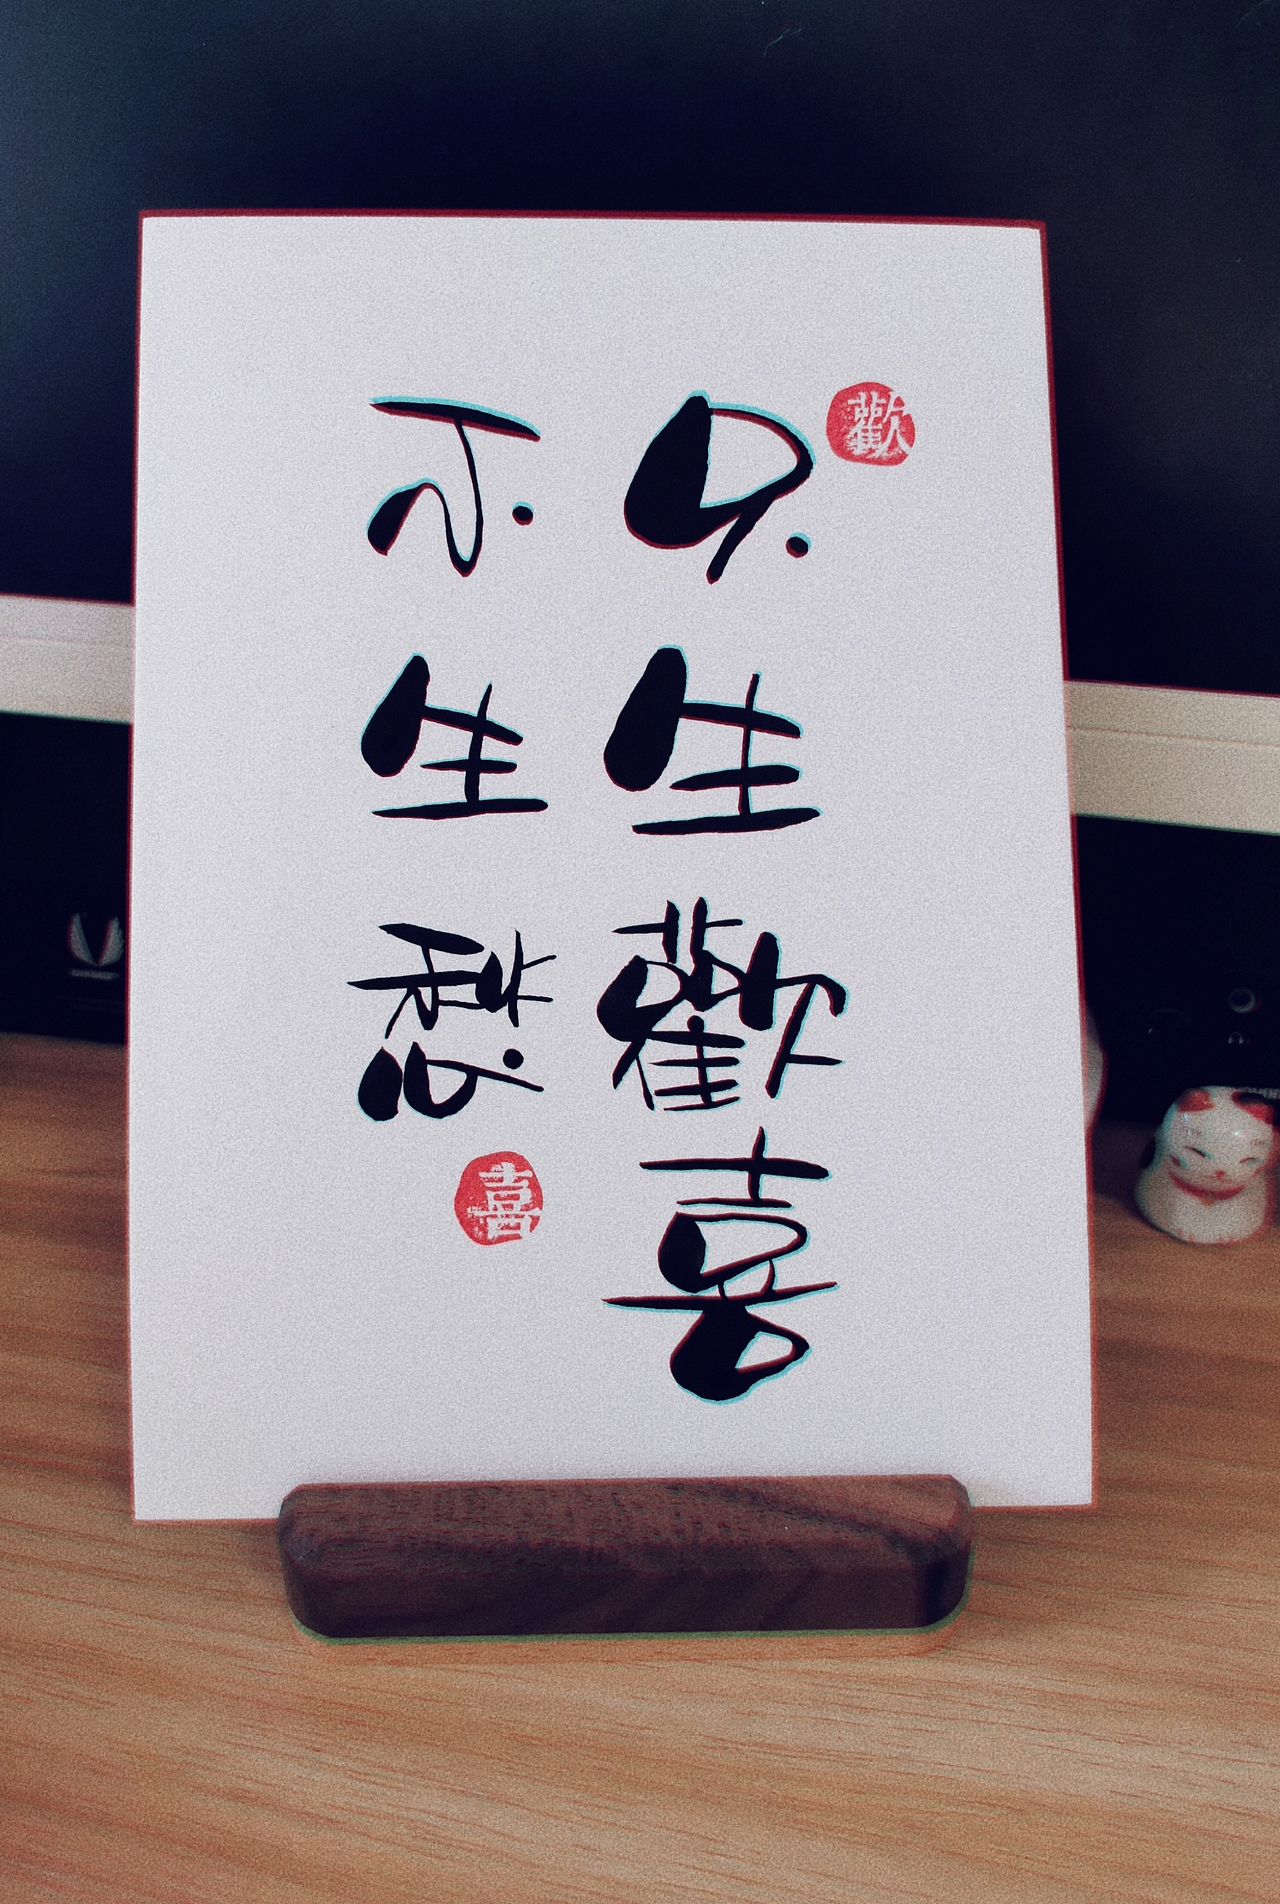 歡
只生歡喜
不生愁
喜